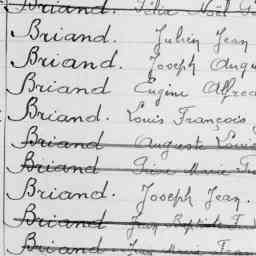 Briand. Félix Noël
Briand. Julien Jean
Briand. Joseph Augu
Briand Eugène Alfred
Briand. Louis François
Briand Auguste Louis
Briand Marie
Briand. Joseph Jean.
Briand Jean Baptiste F.
Briand Jean Marie Fran